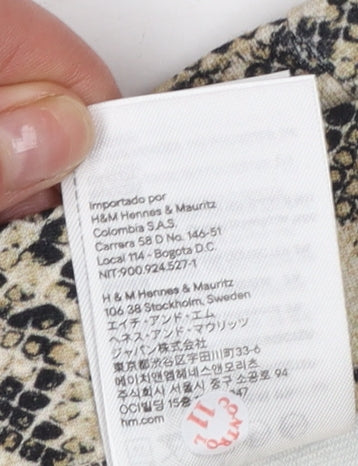 Importado por
H&M Hennes & Mauritz
Colombia S.A.S.
Carrera 58 D No. 146-51
Local 114 - Bogota D.C.
NIT:900.924.527-1
H & M Hennes & Mauritz
106 38 Stockholm, Sweden
エイチ・アンド・エム
ヘネス・アンド・マウリッツ
ジャパン株式会社
東京都渋谷区宇田川町33-6
에이치앤엠헤네스앤모리츠
주식회사 서울시 중구 소공로 94
OCI빌딩 15층 47
hm.com
CONTROL
11